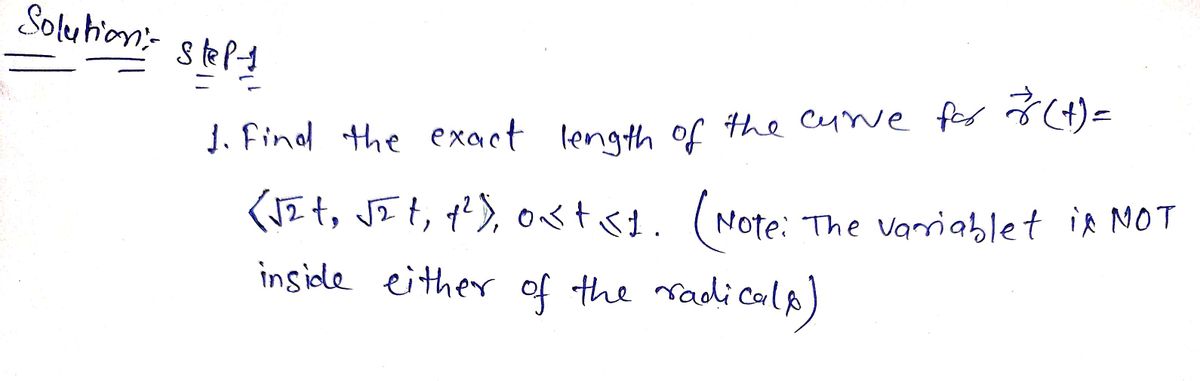 Solution:-
Step-1
1. Find the exact length of the curve for r⃗(t)=
⟨√2 t, √2 t, t²⟩, 0≤t≤1. (Note: The variable t is NOT
inside either of the radicals)